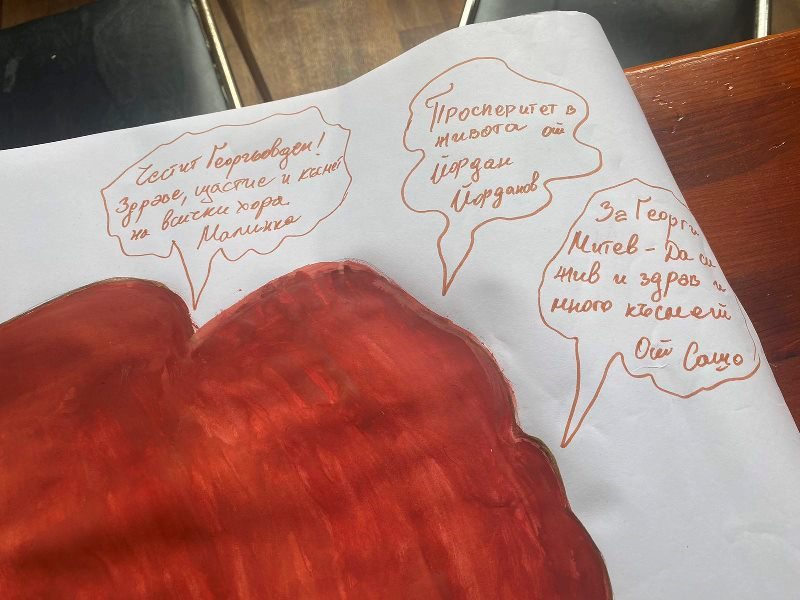 Честит Георгьовден!
Здраве, щастие и късмет
на всички хора.
Малинка
Просперитет в
живота от
Йордан
Йорданов
За Георги
Митев - Да си
жив и здрав и
много късмет
От Сашо